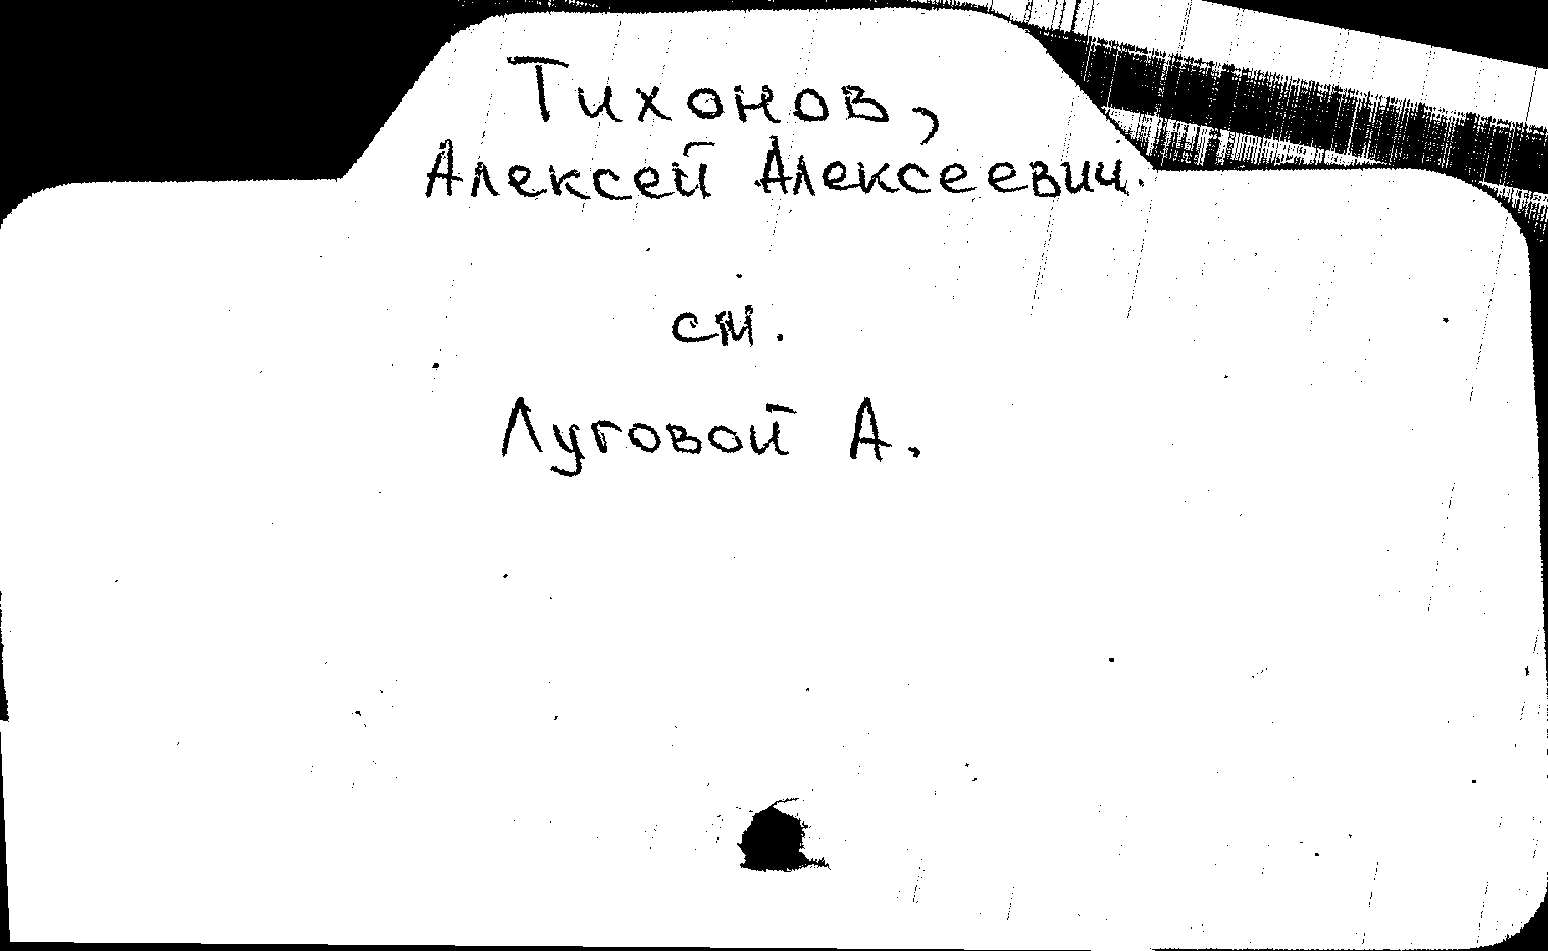 Тихонов,
Алексей Алексеевич.
см.
Луговой А.